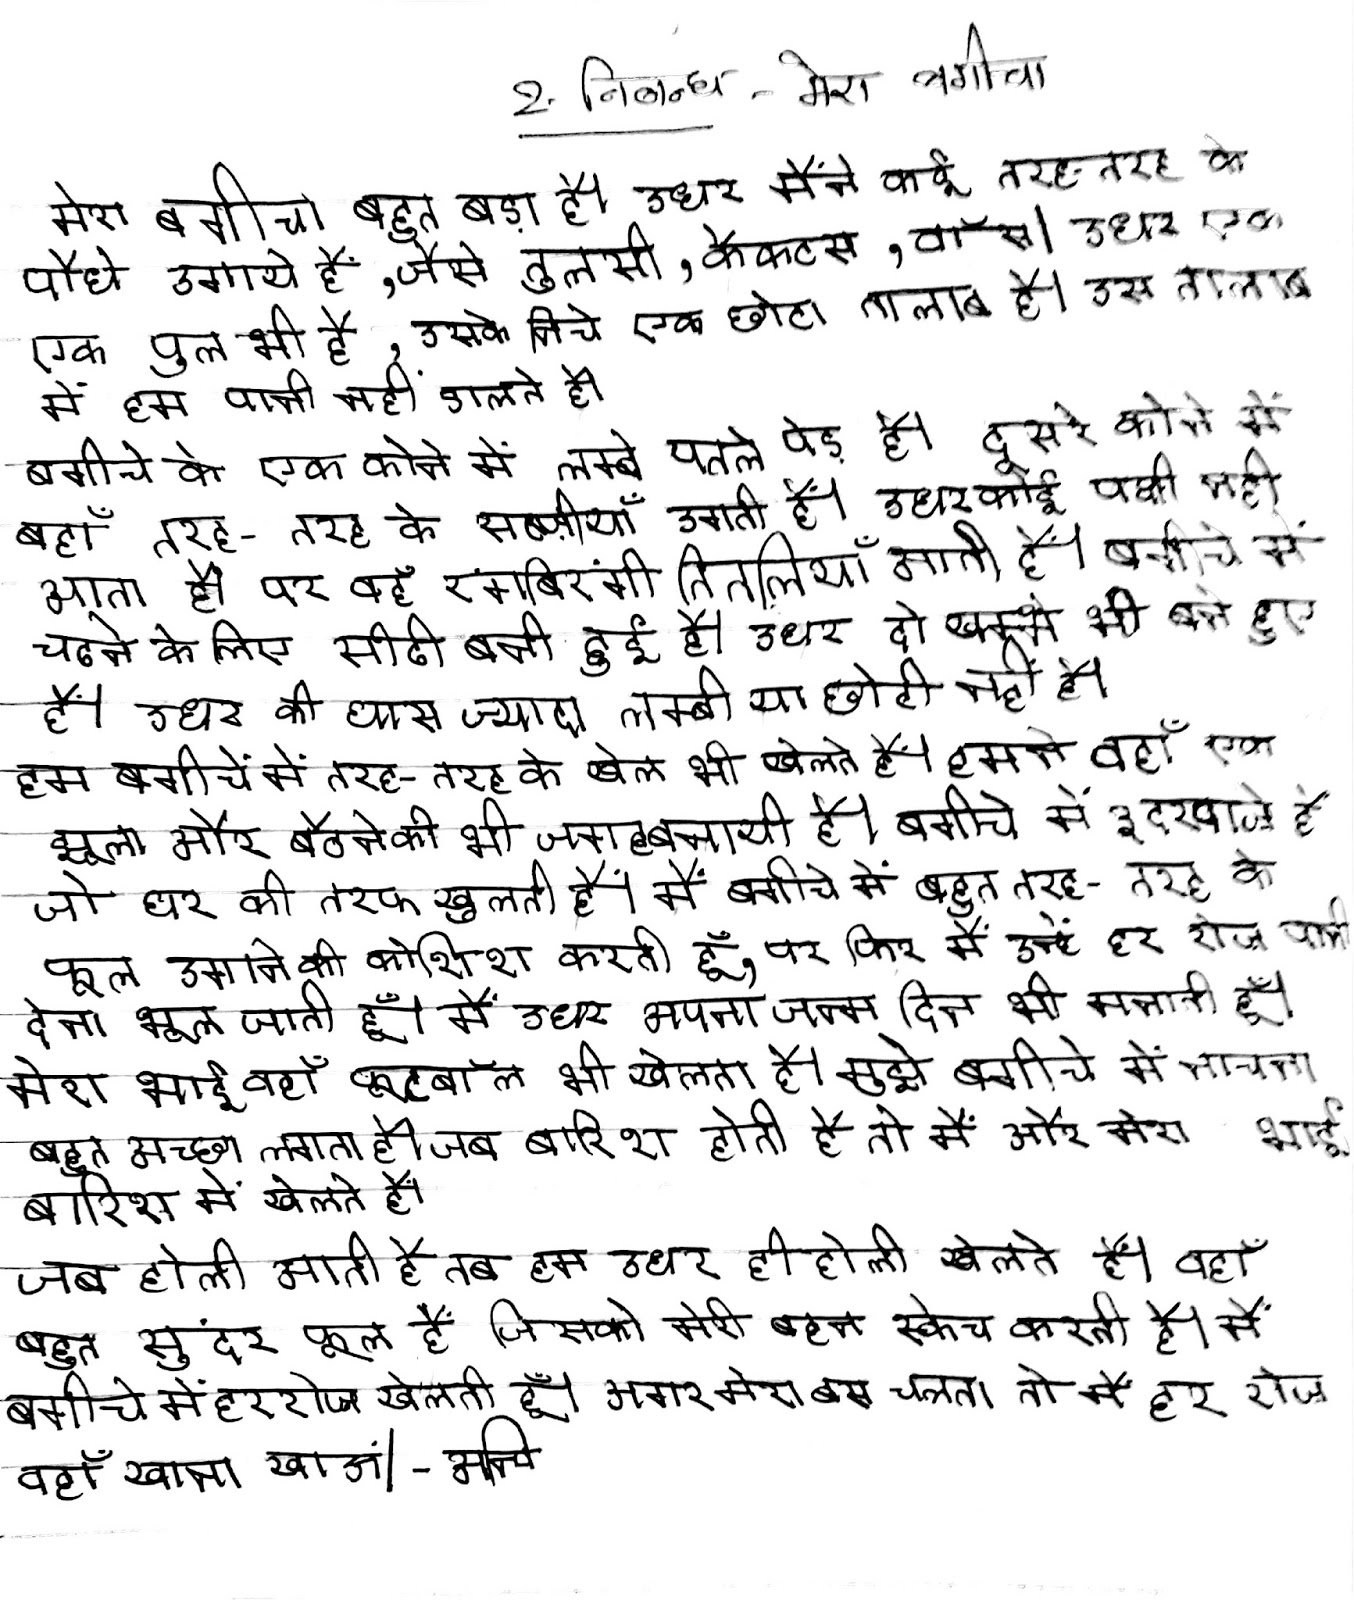 2. निबन्ध - मेरा बगीचा
मेरा बगीचा बहुत बड़ा है। उधर मैंने कई तरह-तरह के
पौधे उगाये हैं, जैसे तुलसी, कैकटस, बाँस। उधर एक
एक पुल भी है, उसके निचे एक छोटा तालाब है। उस तालाब
में हम पानी नहीं डालते है।
बगीचे के एक कोने में लम्बे पतले पेड़ है। दूसरे कोने में
बहाँ तरह-तरह के सब्ज़ीयाँ उगती हैं। उधर कोई पक्षी नही
आता है। पर वहाँ रंगबिरंगी तितलियाँ आती हैं। बगीचे में
चढने के लिए सीढी बनी हुई है। उधर दो खम्भे भी बने हुए
हैं। उधर की घास ज्यादा लम्बी या छोटी नहीं है।
हम बगीचें में तरह-तरह के खेल भी खेलते हैं। हमने वहाँ एक
झूला और बैठने की भी जगह बनायी है। बगीचे में ३ दरवाजे है
जो घर की तरफ खुलती हैं। मैं बगीचे में बहुत तरह-तरह के
फूल उगाने की कोशिश करती हूँ, पर फिर मैं उन्हें हर रोज पानी
देना भूल जाती हूँ। मैं उधर अपना जन्म दिन भी मनाती हूँ।
मेरा भाई वहाँ फूटबॉल भी खेलता है। मुझे बगीचे में नाचना
बहुत अच्छा लगता है। जब बारिश होती है तो मैं और मेरा भाई
बारिश में खेलते हैं।
जब होली आती है तब हम उधर ही होली खेलते हैं। वहाँ
बहुत सुंदर फूल हैं जिसको मेरी बहन स्केच करती है। मैं
बगीचे में हर रोज खेलती हूँ। अगर मेरा बस चलता तो मैं हर रोज
वहाँ खाना खाऊं। -